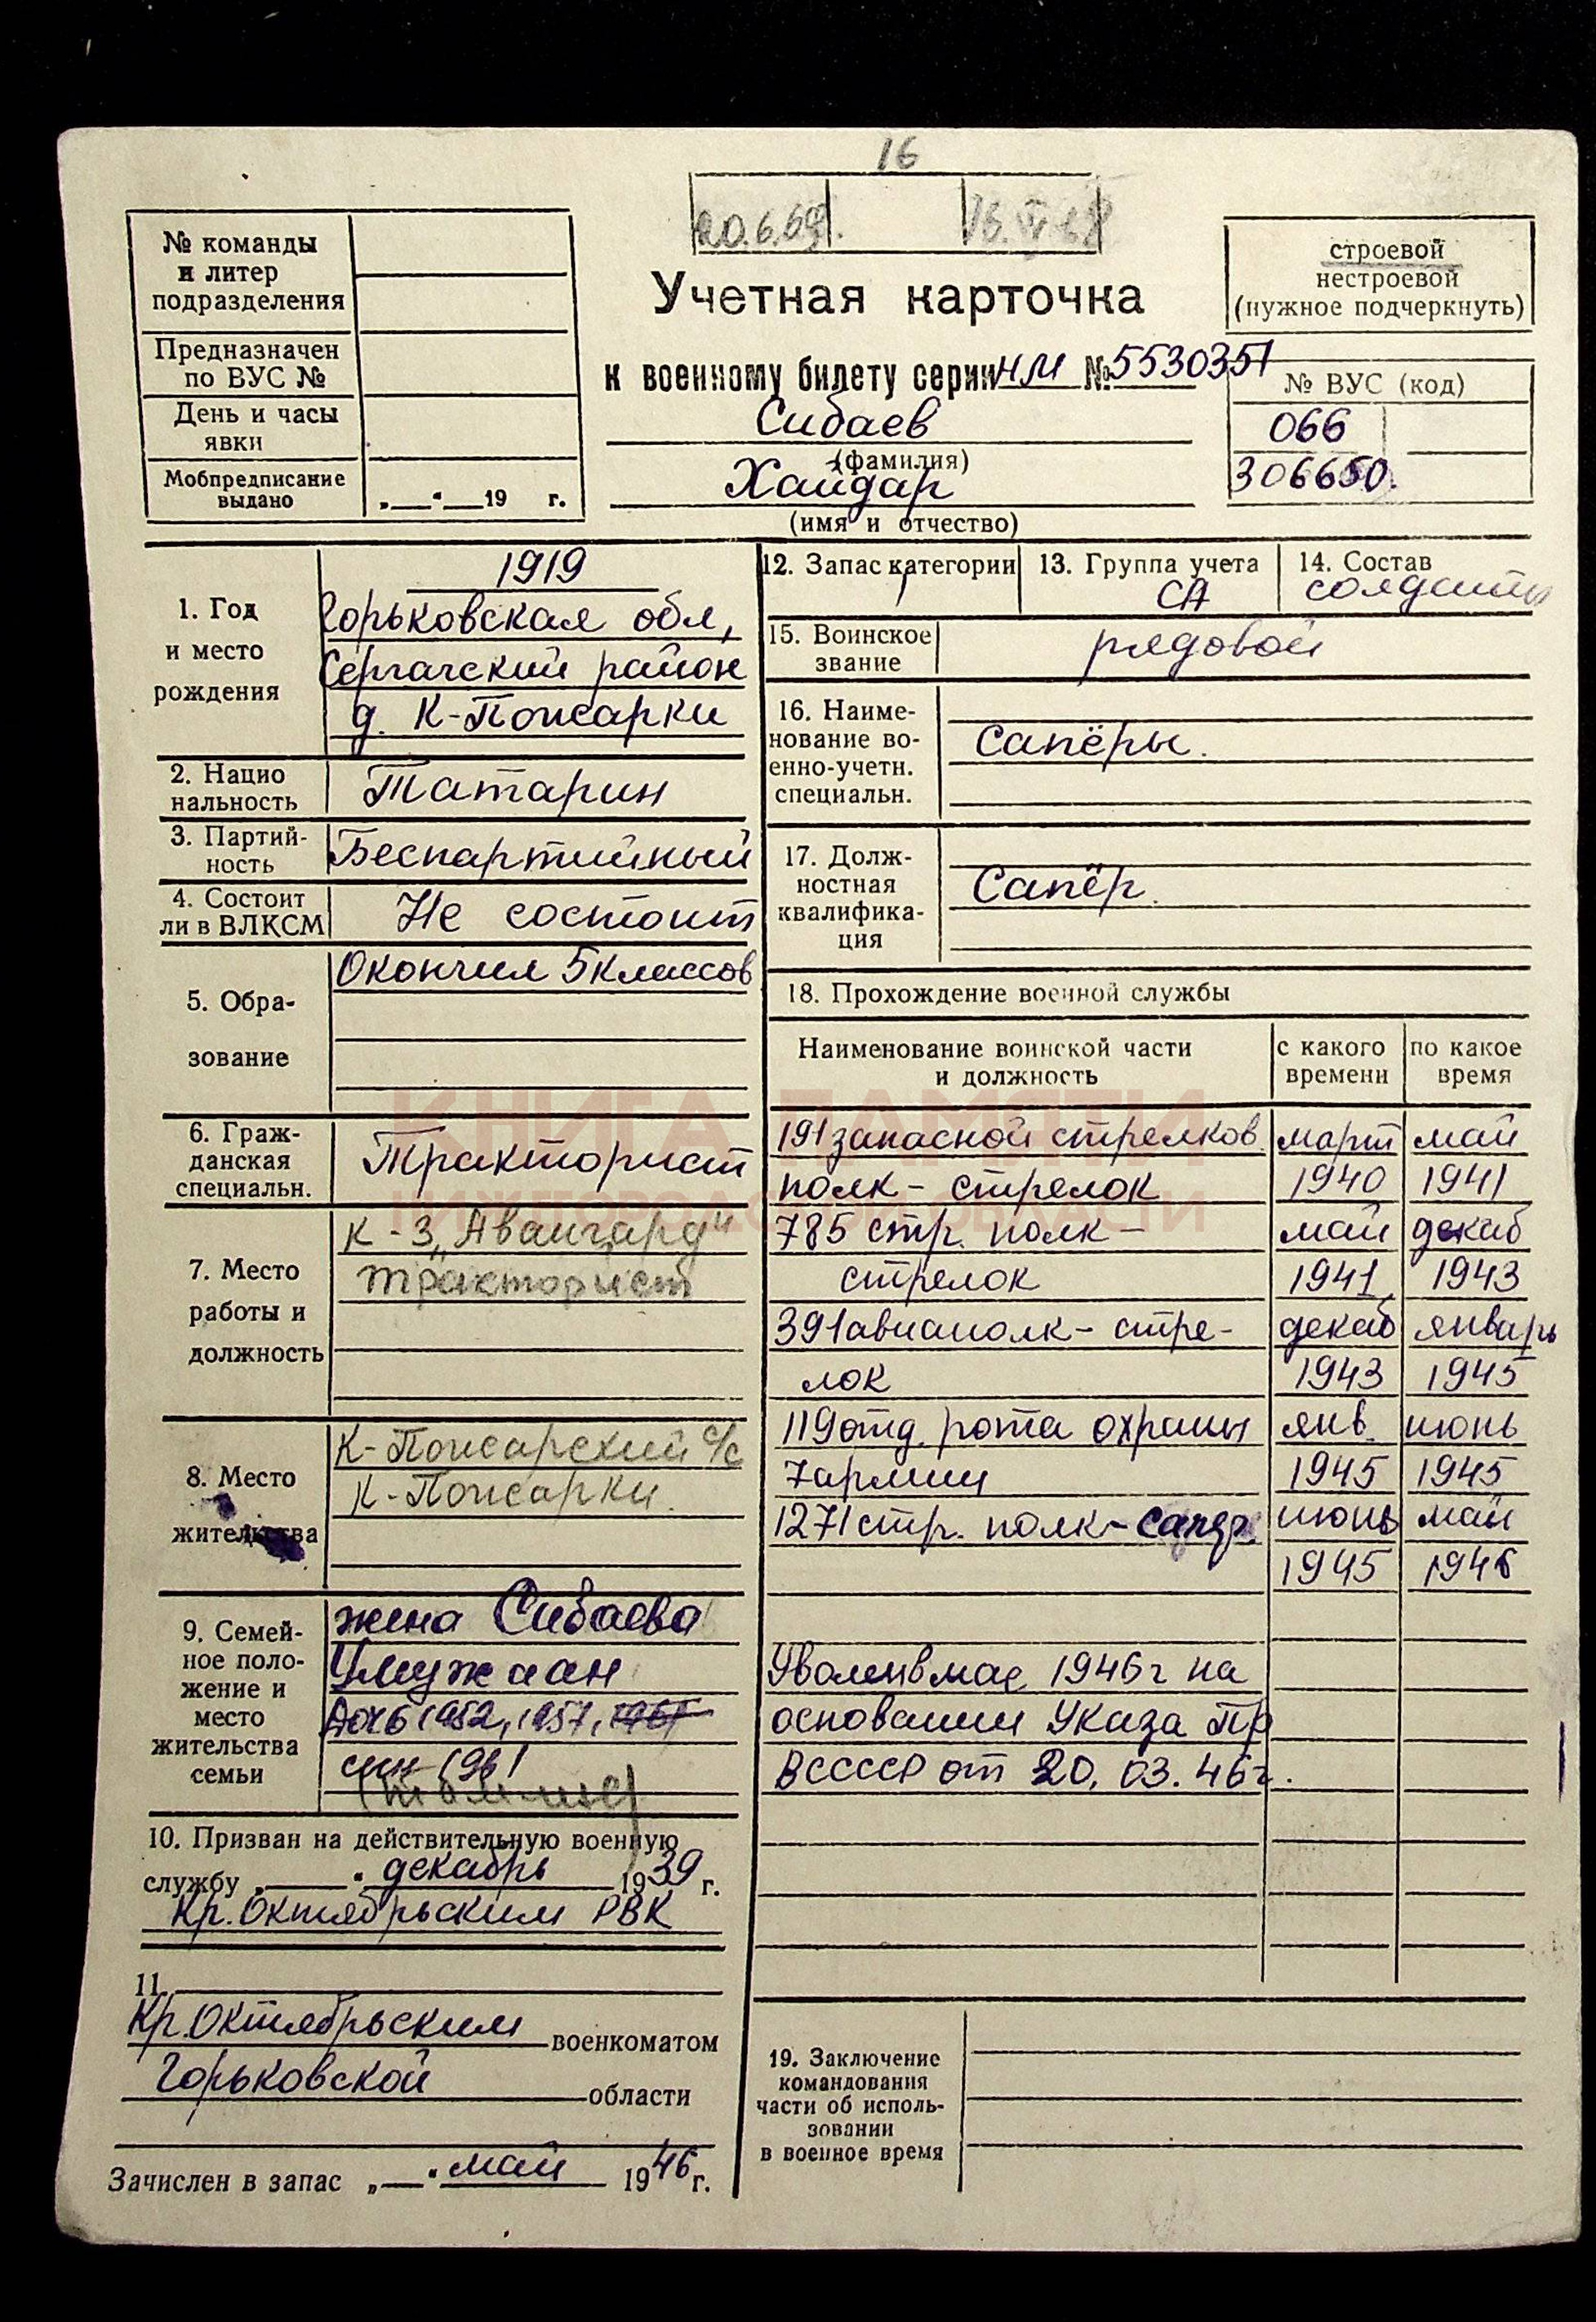 16
20.6.69.
№ команды
и литер
подразделения
Предназначен
по ВУС №
День и часы
явки
Мобпредписание
выдано
„ “ 19 г.
Учетная карточка
к военному билету серии НМ № 5530351
Сибаев
(фамилия)
Хайдар
(имя и отчество)
строевой
нестроевой
(нужное подчеркнуть)
№ ВУС (код)
066
306650.
1. Год
и место
рождения
1919
Горьковская обл,
Сергачский район
д. К-Пожарки
2. Нацио
нальность
Татарин
3. Партий-
ность
Беспартийный
4. Состоит
ли в ВЛКСМ
Не состоит
5. Обра-
зование
Окончил 5 классов
6. Граж-
данская
специальн.
Тракторист
7. Место
работы и
должность
к-з „Авангард“
тракторист
8. Место
жительства
К-Пожарский с/с
К-Пожарки.
9. Семей-
ное поло-
жение и
место
жительства
семьи
жена Сибаева
дочь 1952, 1957,
сын 1961
10. Призван на действительную военную
службу „ “ декабрь 1939 г.
Кр. Октябрьским РВК
11.
Кр. Октябрьским военкоматом
Горьковской области
Зачислен в запас „ “ май 1946 г.
12. Запас категории
1
13. Группа учета
СА
14. Состав
солдаты
15. Воинское
звание
рядовой
16. Наиме-
нование во-
енно-учетн.
специальн.
Сапёры.
17. Долж-
ностная
квалифика-
ция
Сапёр.
18. Прохождение военной службы
Наименование воинской части
и должность
с какого
времени
по какое
время
191 запасной стрелков. март май
полк - стрелок 1940 1941
785 стр. полк - май декаб
стрелок 1941 1943
391 авиаполк - стре- декаб январь
лок 1943 1945
119 отд. рота охраны янв. июнь
7 армии 1945 1945
1271 стр. полк - сапёр. июнь май
1945 1946
Уволен в мае 1946 г на
основании Указа Пр
ВСССР от 20.03.46 г.
19. Заключение
командования
части об исполь-
зовании
в военное время
КНИГА ПАМЯТИ
НИЖЕГОРОДСКОЙ ОБЛАСТИ